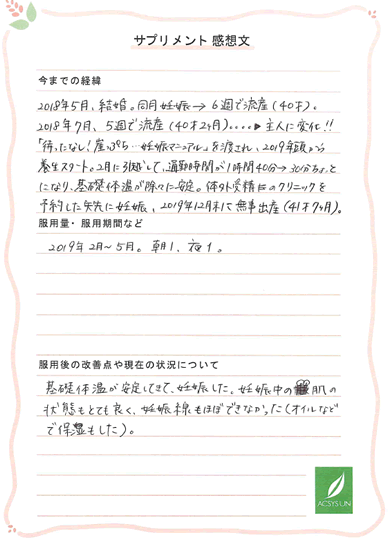 サプリメント 感想文
今までの経緯
2018年5月、結婚。同月妊娠→6週で流産(40才)。
2018年7月、5週で流産(40才2ヶ月)。...▶主人に変化!!
「待ったなし!崖っぷち…妊娠マニュアル」を渡され、2019年頭から
養生スタート。2月に引越して、通勤時間が1時間40分→30分ちょっと
になり、基礎体温が除々に安定。体外受精のクリニックを
予約した矢先に妊娠、2019年12月末に無事出産(41才7ヶ月)。
服用量・服用期間など
2019年2月〜5月。朝1、夜1。
服用後の改善点や現在の状況について
基礎体温が安定してきて、妊娠した。妊娠中の肌の
状態もとても良く、妊娠線もほぼできなかった(オイルなど
で保湿もした)。
ACSYSUN